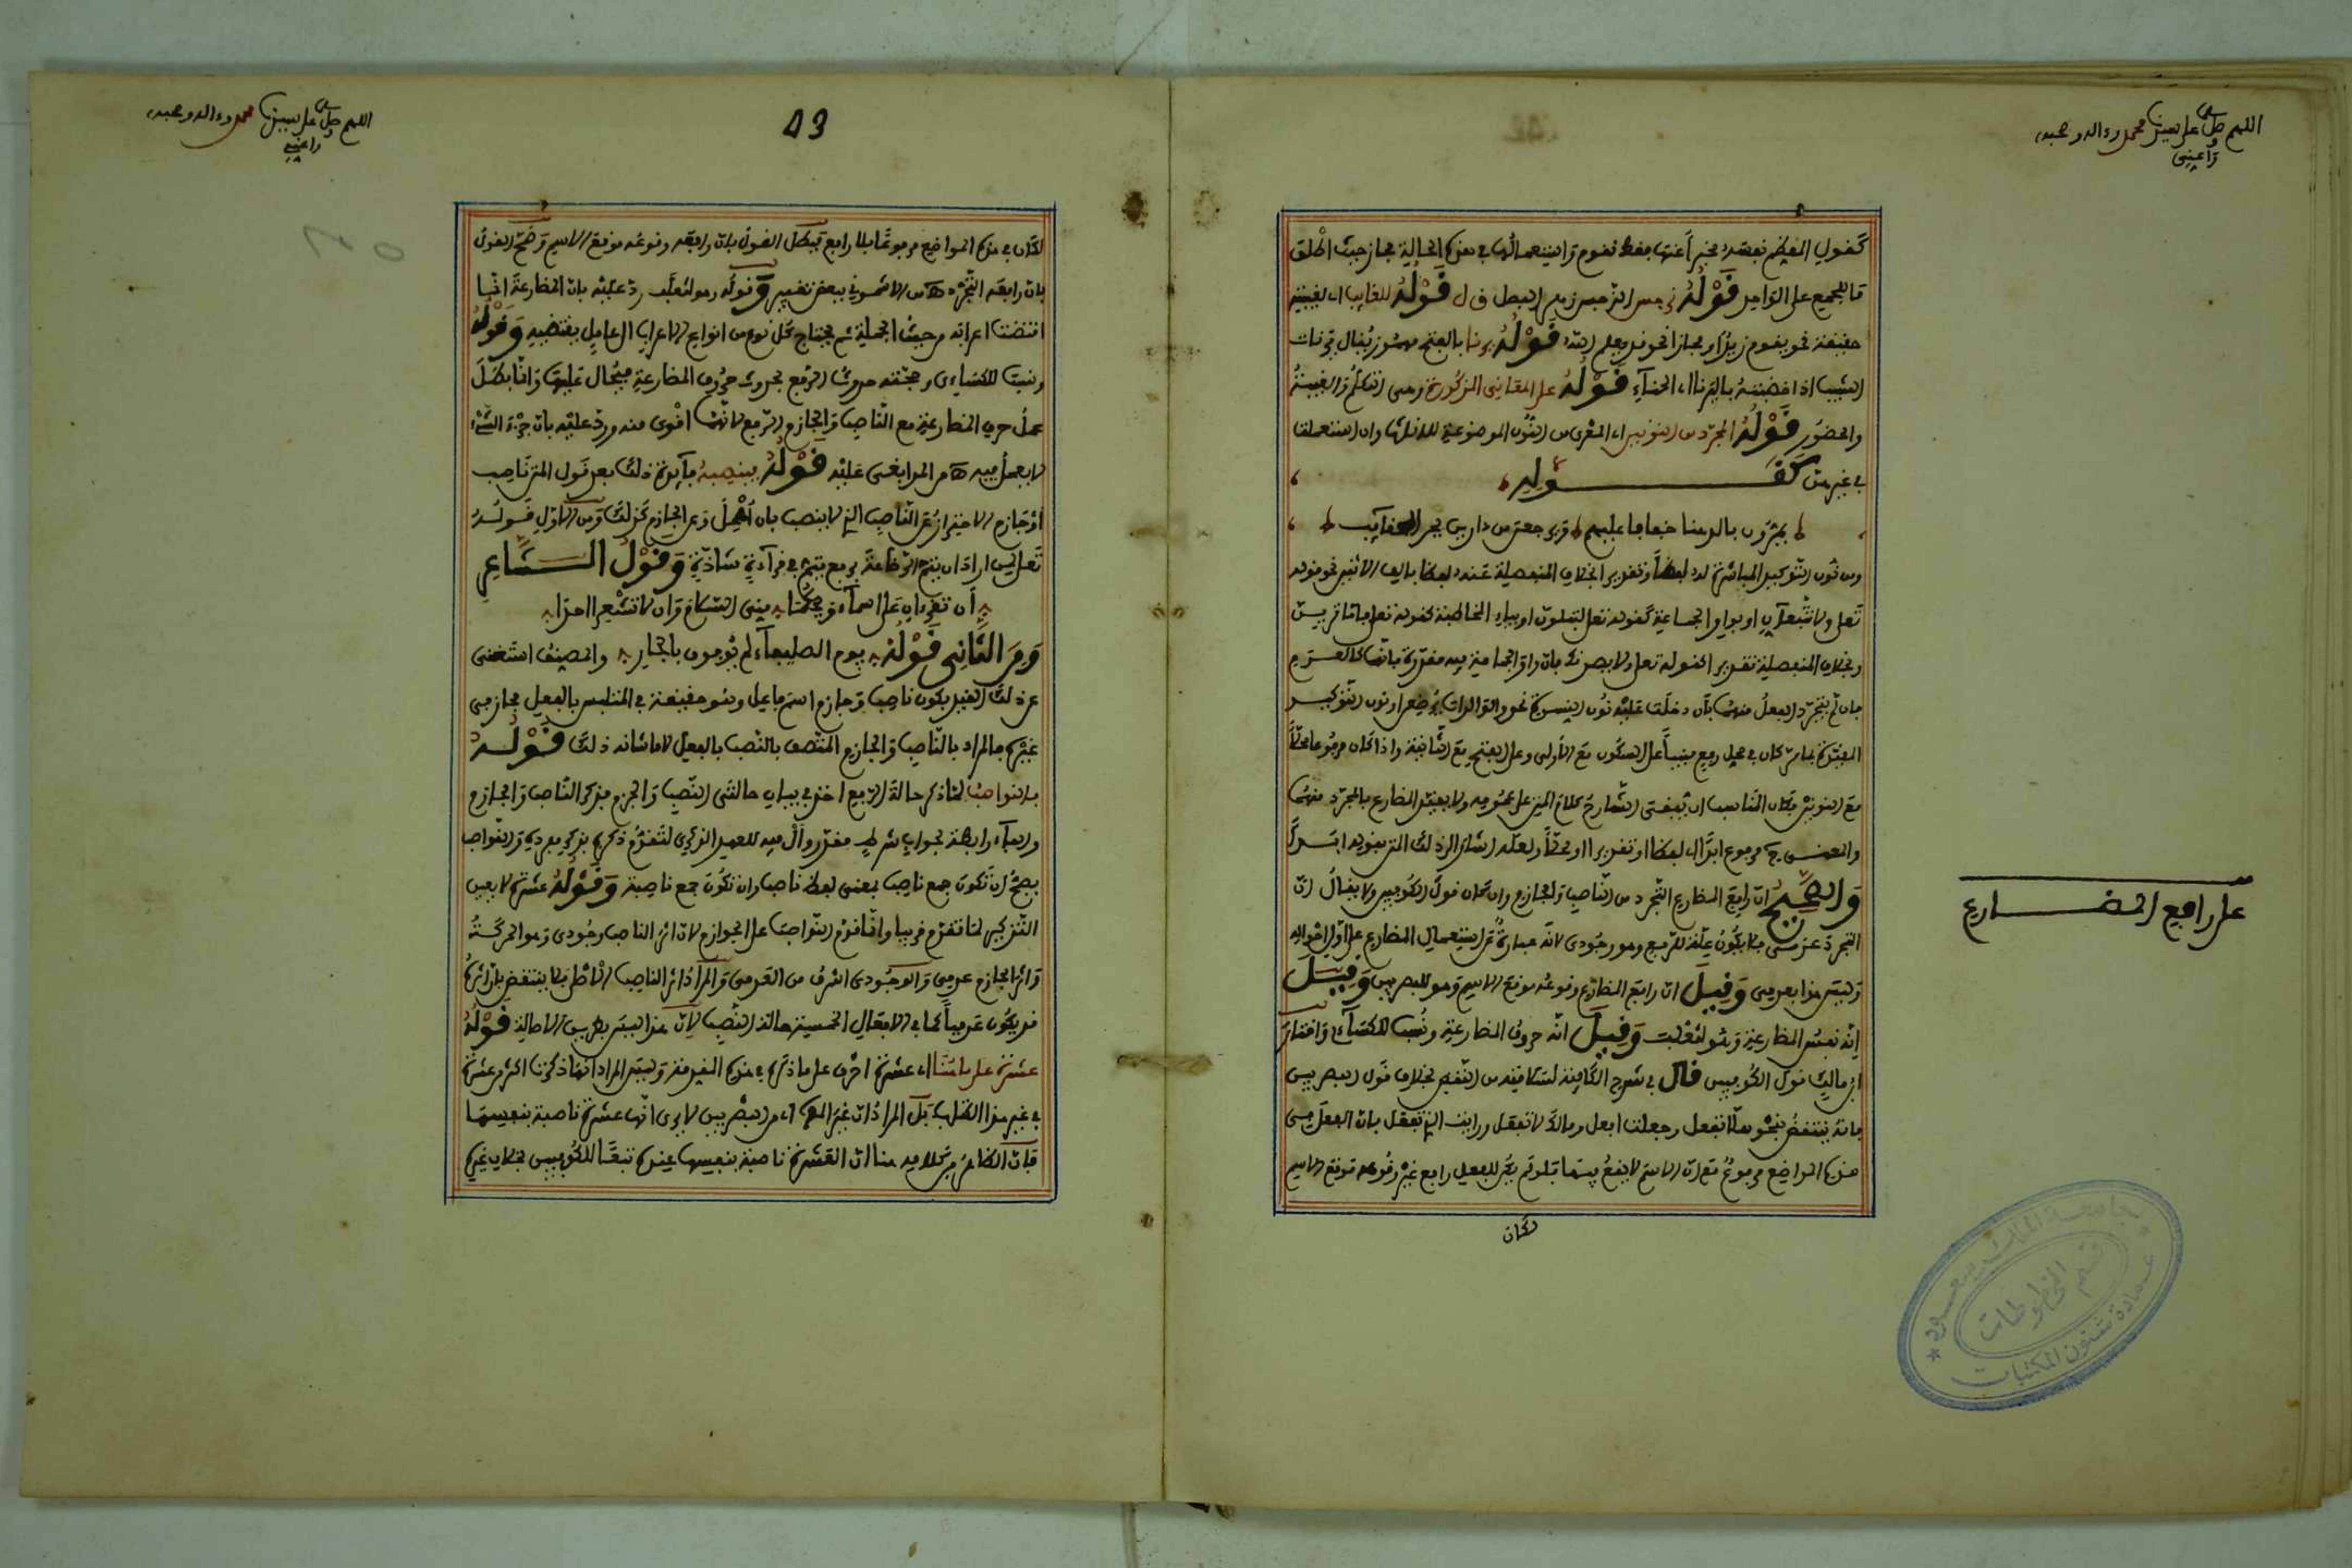 اللهم صل على سيدنا محمد وءاله وصحبه
واعني
كقول المعظم نفسه مخبرا عنها فقط نقوم واستعمالها في هذه الحالة مجاز حيث اطلق
ما للجمع على الواحد قوله نرجس النرجس زيد البطل قوله للغايب اي لغيبته
حقيقة نحو يقوم زيد او مجازا نحو قد يعلم الله قوله يرنا بالفتح مهموز يقال يرنات
الشيب اذا خضبته باليرنا اي الحناء قوله على المعاني المذكورة وهي التكلم والغيبة
والحضور قوله المجرد من النونين اي المعرى من النون الموضوعة للاناث وان استعملت
في غيرهن كقوله
يمرون بالدهنا خفافا عيابهم ويرجعن من دارين بجر الحقايب
ومن نون التوكيد المباشرة له لفظا وتقديرا بخلاف المنفصلة عنه لفظا بالف الاثنين نحو قوله
تعلى ولا تتبعان او بواو الجماعة كقوله تعلى لتبلون او بياء المخاطبة كقوله تعلى فاما ترين
وبخلاف المنفصلة تقديرا كقوله تعلى ولا يصدنك فان واو الجماعة فيه مقدرة فانها كالعدم
فان لم يتجرد الفعل منهما بان دخلت عليه نون النسوة نحو والوالدات يرضعن او نون التوكيد
المعتبرة بما مر كان في محل رفع مبنيا على السكون مع الاولى وعلى الفتح مع الثانية واذا كان مرفوعا محلا
مع النونين فكان المناسب ان يبقي الشارح كلام المتن على عمومه ولا يقيد المضارع بالمجرد منهما
والمعنى ح مرفوع ابدا اي لفظا او تقديرا او محلا ولعله اشار الى ذلك المتن بقوله ابدا
والصحيح ان رافع المضارع التجرد من الناصب والجازم وان كان قول الكوفيين ولا يقال ان
التجرد عدمي فلا يكون علة للرفع وهو وجودي لانه عبارة عن استعمال المضارع على اول احواله
وليس هذا بعدمي وقيل ان رافع المضارع وقوعه موقع الاسم وهو للبصريين وقيل
انه نفس المضارعة وهو لثعلب وقيل انه حروف المضارعة ونسب للكساءي واختار
ابن مالك قول الكوفيين قال في شرح الكافية لسلامته من النقض بخلاف قول البصريين
فانه ينتقض بنحو هلا تفعل وجعلت افعل ومالك لا تفعل ورايت الذي تفعل فان الفعل في
هذه المواضع مرفوع مع ان الاسم لا يقع فيها فلو لم يكن للفعل رافع غير وقوعه موقع الاسم
لكان
على رافع المضارع
جامعة الملك سعود
قسم المخطوطات
عمادة شئون المكتبات
اللهم صل على سيدنا محمد وءاله وصحبه
واعني
53
لكان في هذه المواضع مرفوعا بلا رافع فبطل القول بان رافعه وقوعه موقع الاسم وصح القول
بان رافعه التجرد اه من الاشموني ببعض تغيير وقوله وهو لثعلب رد عليه بان المضارعة انما
اقتضت اعرابه من حيث الجملة ثم يحتاج كل نوع من انواع الاعراب الى عامل يقتضيه وقوله
ونسب للكساءي وحجته حدوث الرفع بحدوث حروف المضارعة فيحال عليها وانما بطل
عمل حرف المضارعة مع الناصب والجازم الرفع لانهما اقوى منه ورد عليه بان جزء الشيء
لا يعمل فيه اه من المرابغي عليه قوله فينصبه فايدة ذلك بعد قول المتن ناصب
او جازم الاحتراز عن الناصب الذي لا ينصب بان اهمل وعن الجازم كذلك ومن الاول قوله
تعلى لمن اراد ان يتم الرضاعة برفع يتم في قراءة شاذة وقول الشاعر
ان تقرءان على اسماء ويحكما مني السلام وان لا تشعرا احدا
ومن الثاني قوله يوم الصليفاء لم يوفون بالجار والمصنف استغنى
عن ذلك القيد بكون ناصب وجازم اسم فاعل وهو حقيقة في المتلبس بالفعل مجاز في
غيره فالمراد بالناصب والجازم المتصف بالنصب بالفعل لا ما شانه ذلك قوله
فالنواصب لما ذكر حالة الرفع اخذ في بيان حالتي النصب والجزم بذكر الناصب والجازم
والفاء رابطة لجواب شرط مقدر وال فيه للعهد الذكري لتقدم ذكره بذكر مفرده والنواصب
يصح ان تكون جمع ناصب بمعنى لفظ ناصب وان تكون جمع ناصبة وقوله عشرة لا يعين
التذكير لما تقدم قريبا وانما قدم النواصب على الجوازم لان اثر الناصب وجودي وهو الحركة
واثر الجازم عدمي والوجودي اشرف من العدمي والمراد اثر الناصب الاصلي فلا ينتقض بان اثره
قد يكون عدميا كما في الافعال الخمسة حالة النصب لان هذا ليس بطريق الاصالة قوله
عشرة على ما هنا اي عشرة احرف على ما ذكره في هذه المقدمة وليس المراد انها ذكرت اكثر من عشرة
في غير هذا الكتاب بل المراد ان غيره اي من البصريين لا يرى انها عشرة ناصبة بنفسها
فان الظاهر من كلامه هنا ان العشرة ناصبة بنفسها عنده تبعا للكوفيين بخلاف غيره